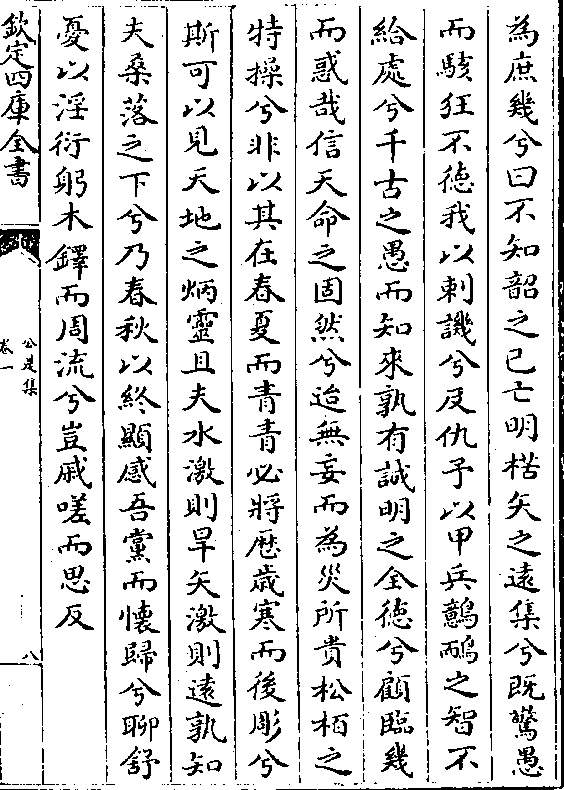 為庶幾兮曰不知韶之已亡明楛矢之遠集兮既驚愚
而駭狂不德我以刺譏兮反仇予以甲兵鷾鴯之智不
給處兮千古之愚而知來孰有誠明之全德兮顧臨幾
而惑哉信天命之固然兮迨無妄而為災所貴松栢之
特操兮非以其在春夏而青青必將歴歳寒而後彫兮
斯可以見天地之炳靈且夫水激則旱矢激則遠孰知
夫桑落之下兮乃春秋以終顯感吾黨而懷歸兮聊舒
憂以淫衍躬木鐸而周流兮豈戚嗟而思反
欽定四庫全書
公是集
卷一
八